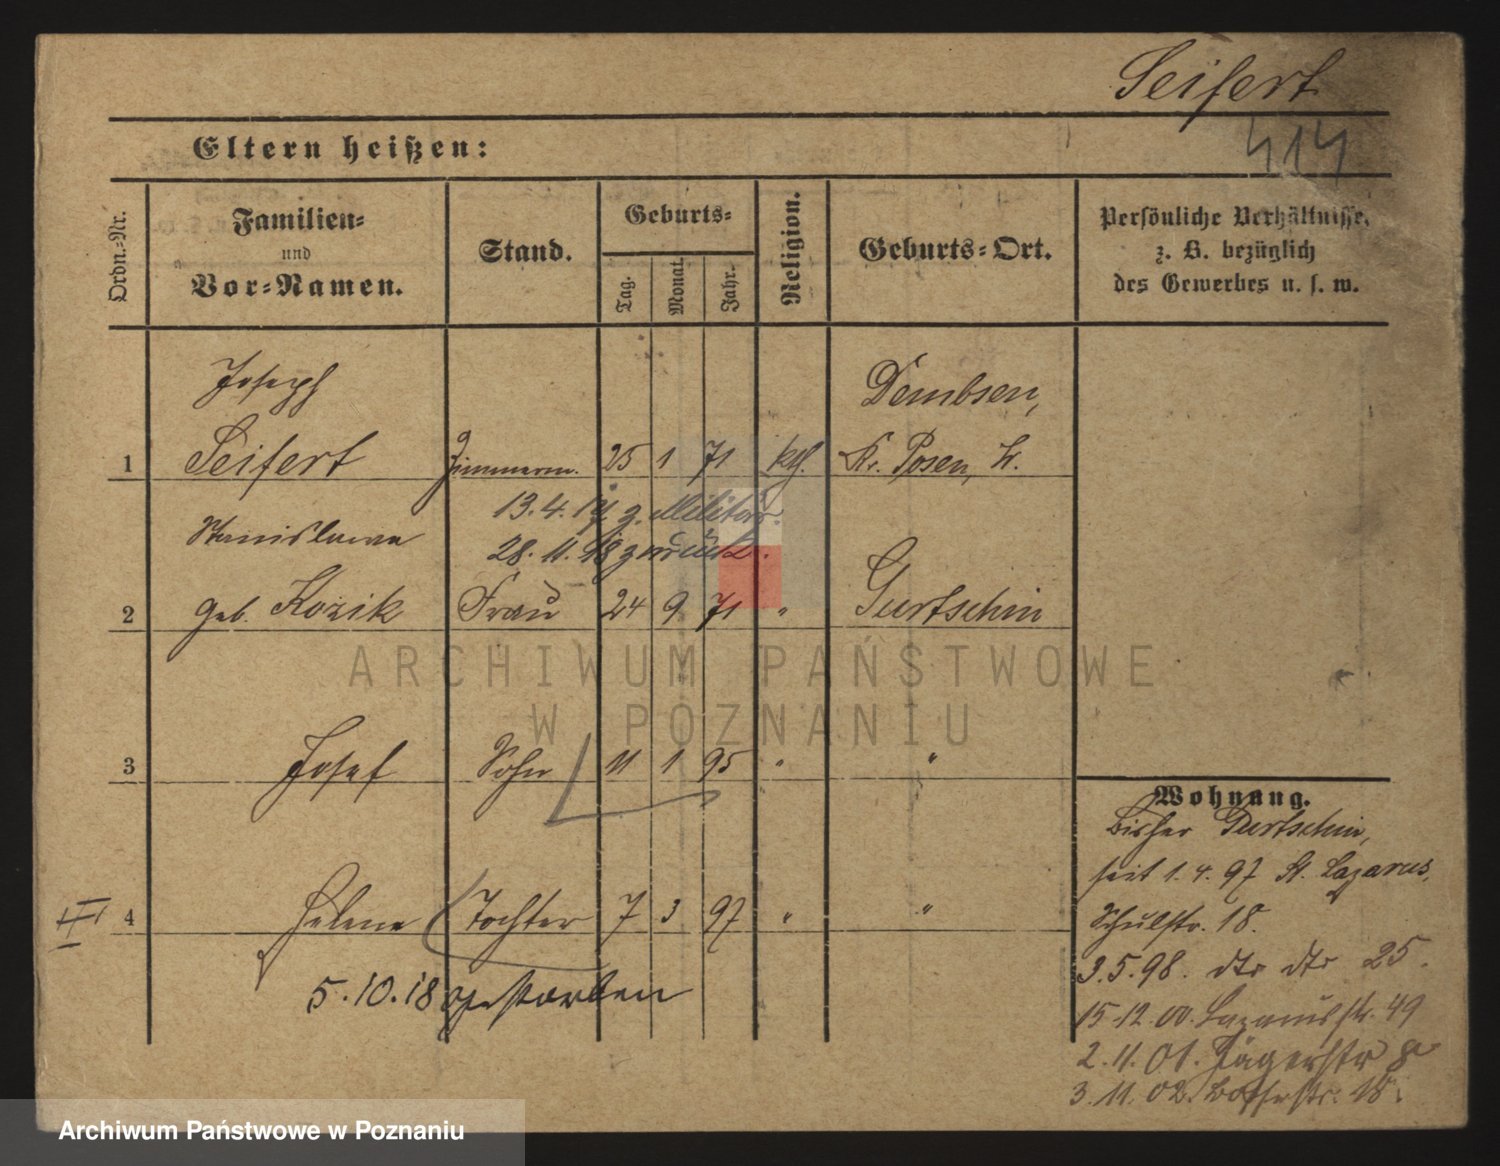 Seifert
414
Eltern heißen:
Ordn.-Nr.
Familien-
und
Vor-Namen.
Stand.
Geburts-
Tag.
Monat.
Jahr.
Religion.
Geburts-Ort.
Persönliche Verhältnisse,
z. B. bezüglich
des Gewerbes u. s. w.
Joseph Dembsen,
1 Seifert Zimmerm. 25 1 71 kth. Kr. Posen, W.
13.4.17 z. Militär.
Stanislawa 28.11.18 zurück.
2 geb. Kozik Frau 24 9 71 " Gurtschin
3 Josef Sohn 11 1 95 " "
III 4 Helene Tochter 7 3 97 " "
5.10.18 gestorben
Wohnung.
bisher Gurtschin,
seit 1.4.97 St. Lazarus,
Schulstr. 18.
3.5.98. dto dto 25.
15.12.00. Lazarusstr. 49
2.11.01. Jägerstr 8
3.11.02. 18.
ARCHIWUM PAŃSTWOWE
W POZNANIU
Archiwum Państwowe w Poznaniu